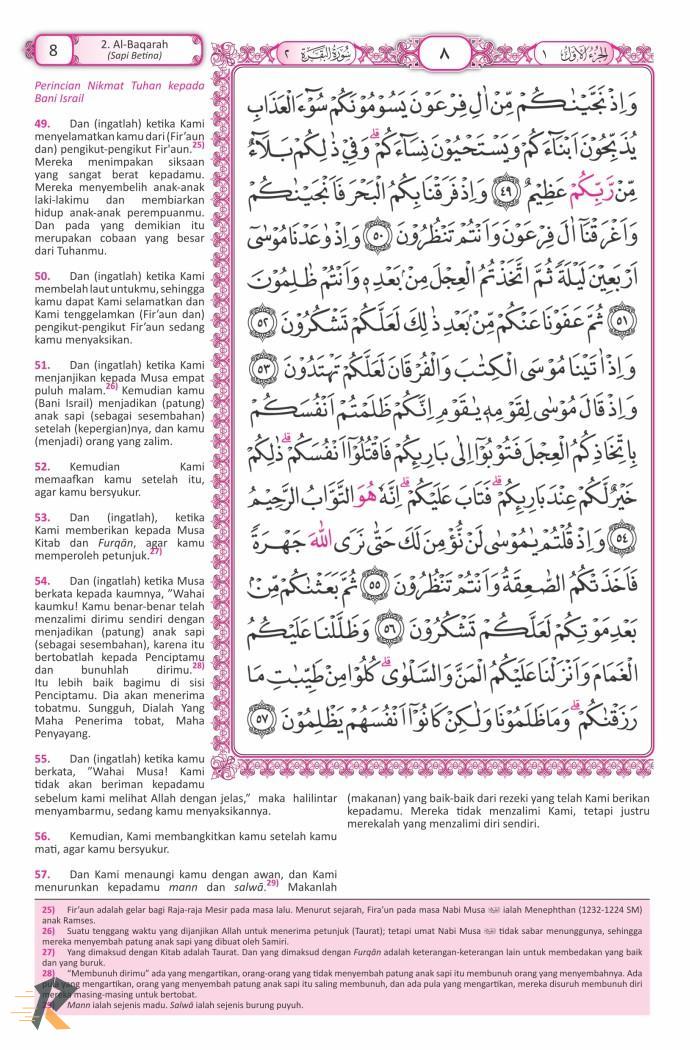 8
2. Al-Baqarah
(Sapi Betina)
٢ سُوْرَةُ الْبَقَرَةِ
٨
اَلْجُزْءُ الْاَوَّلُ ١
Perincian Nikmat Tuhan kepada
Bani Israil
49. Dan (ingatlah) ketika Kami
menyelamatkan kamu dari (Fir’aun
dan) pengikut-pengikut Fir’aun.25)
Mereka menimpakan siksaan
yang sangat berat kepadamu.
Mereka menyembelih anak-anak
laki-lakimu dan membiarkan
hidup anak-anak perempuanmu.
Dan pada yang demikian itu
merupakan cobaan yang besar
dari Tuhanmu.
50. Dan (ingatlah) ketika Kami
membelah laut untukmu, sehingga
kamu dapat Kami selamatkan dan
Kami tenggelamkan (Fir’aun dan)
pengikut-pengikut Fir’aun sedang
kamu menyaksikan.
51. Dan (ingatlah) ketika Kami
menjanjikan kepada Musa empat
puluh malam.26) Kemudian kamu
(Bani Israil) menjadikan (patung)
anak sapi (sebagai sesembahan)
setelah (kepergian)nya, dan kamu
(menjadi) orang yang zalim.
52. Kemudian Kami
memaafkan kamu setelah itu,
agar kamu bersyukur.
53. Dan (ingatlah), ketika
Kami memberikan kepada Musa
Kitab dan Furqān, agar kamu
memperoleh petunjuk.27)
54. Dan (ingatlah) ketika Musa
berkata kepada kaumnya, ”Wahai
kaumku! Kamu benar-benar telah
menzalimi dirimu sendiri dengan
menjadikan (patung) anak sapi
(sebagai sesembahan), karena itu
bertobatlah kepada Penciptamu
dan bunuhlah dirimu.28)
Itu lebih baik bagimu di sisi
Penciptamu. Dia akan menerima
tobatmu. Sungguh, Dialah Yang
Maha Penerima tobat, Maha
Penyayang.
55. Dan (ingatlah) ketika kamu
berkata, ”Wahai Musa! Kami
tidak akan beriman kepadamu
sebelum kami melihat Allah dengan jelas,” maka halilintar
menyambarmu, sedang kamu menyaksikannya.
56. Kemudian, Kami membangkitkan kamu setelah kamu
mati, agar kamu bersyukur.
57. Dan Kami menaungi kamu dengan awan, dan Kami
menurunkan kepadamu mann dan salwā.29) Makanlah
(makanan) yang baik-baik dari rezeki yang telah Kami berikan
kepadamu. Mereka tidak menzalimi Kami, tetapi justru
merekalah yang menzalimi diri sendiri.
وَاِذْ نَجَّيْنٰكُمْ مِّنْ اٰلِ فِرْعَوْنَ يَسُوْمُوْنَكُمْ سُوْۤءَ الْعَذَابِ
يُذَبِّحُوْنَ اَبْنَاۤءَكُمْ وَيَسْتَحْيُوْنَ نِسَاۤءَكُمْ ۗ وَفِيْ ذٰلِكُمْ بَلَاۤءٌ
مِّنْ رَّبِّكُمْ عَظِيْمٌ ٤٩ وَاِذْ فَرَقْنَا بِكُمُ الْبَحْرَ فَاَنْجَيْنٰكُمْ
وَاَغْرَقْنَآ اٰلَ فِرْعَوْنَ وَاَنْتُمْ تَنْظُرُوْنَ ٥٠ وَاِذْ وٰعَدْنَا مُوْسٰىٓ
اَرْبَعِيْنَ لَيْلَةً ثُمَّ اتَّخَذْتُمُ الْعِجْلَ مِنْۢ بَعْدِهٖ وَاَنْتُمْ ظٰلِمُوْنَ
٥١ ثُمَّ عَفَوْنَا عَنْكُمْ مِّنْۢ بَعْدِ ذٰلِكَ لَعَلَّكُمْ تَشْكُرُوْنَ ٥٢
وَاِذْ اٰتَيْنَا مُوْسَى الْكِتٰبَ وَالْفُرْقَانَ لَعَلَّكُمْ تَهْتَدُوْنَ ٥٣
وَاِذْ قَالَ مُوْسٰى لِقَوْمِهٖ يٰقَوْمِ اِنَّكُمْ ظَلَمْتُمْ اَنْفُسَكُمْ
بِاتِّخَاذِكُمُ الْعِجْلَ فَتُوْبُوْٓا اِلٰى بَارِىِٕكُمْ فَاقْتُلُوْٓا اَنْفُسَكُمْ ۗ ذٰلِكُمْ
خَيْرٌ لَّكُمْ عِنْدَ بَارِىِٕكُمْ ۗ فَتَابَ عَلَيْكُمْ ۗ اِنَّهٗ هُوَ التَّوَّابُ الرَّحِيْمُ
٥٤ وَاِذْ قُلْتُمْ يٰمُوْسٰى لَنْ نُّؤْمِنَ لَكَ حَتّٰى نَرَى اللّٰهَ جَهْرَةً
فَاَخَذَتْكُمُ الصّٰعِقَةُ وَاَنْتُمْ تَنْظُرُوْنَ ٥٥ ثُمَّ بَعَثْنٰكُمْ مِّنْۢ
بَعْدِ مَوْتِكُمْ لَعَلَّكُمْ تَشْكُرُوْنَ ٥٦ وَظَلَّلْنَا عَلَيْكُمُ
الْغَمَامَ وَاَنْزَلْنَا عَلَيْكُمُ الْمَنَّ وَالسَّلْوٰى ۗ كُلُوْا مِنْ طَيِّبٰتِ مَا
رَزَقْنٰكُمْ ۗ وَمَا ظَلَمُوْنَا وَلٰكِنْ كَانُوْٓا اَنْفُسَهُمْ يَظْلِمُوْنَ ٥٧
25) Fir’aun adalah gelar bagi Raja-raja Mesir pada masa lalu. Menurut sejarah, Fira’un pada masa Nabi Musa ialah Menephthan (1232-1224 SM)
anak Ramses.
26) Suatu tenggang waktu yang dijanjikan Allah untuk menerima petunjuk (Taurat); tetapi umat Nabi Musa tidak sabar menunggunya, sehingga
mereka menyembah patung anak sapi yang dibuat oleh Samiri.
27) Yang dimaksud dengan Kitab adalah Taurat. Dan yang dimaksud dengan Furqān adalah keterangan-keterangan lain untuk membedakan yang baik
dan yang buruk.
28) “Membunuh dirimu” ada yang mengartikan, orang-orang yang tidak menyembah patung anak sapi itu membunuh orang yang menyembahnya. Ada
pula yang mengartikan, orang yang menyembah patung anak sapi itu saling membunuh, dan ada pula yang mengartikan, mereka disuruh membunuh diri
mereka masing-masing untuk bertobat.
29) Mann ialah sejenis madu. Salwā ialah sejenis burung puyuh.